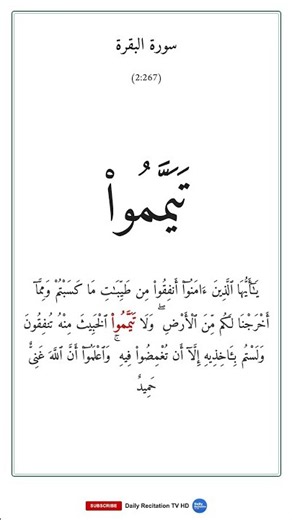 سورة البقرة
(2:267)
تَيَمَّمُوا۟
يَـٰٓأَيُّهَا ٱلَّذِينَ ءَامَنُوٓا۟ أَنفِقُوا۟ مِن طَيِّبَـٰتِ مَا كَسَبْتُمْ وَمِمَّآ
أَخْرَجْنَا لَكُم مِّنَ ٱلْأَرْضِ ۖ وَلَا تَيَمَّمُوا۟ ٱلْخَبِيثَ مِنْهُ تُنفِقُونَ
وَلَسْتُم بِـَٔاخِذِيهِ إِلَّآ أَن تُغْمِضُوا۟ فِيهِ ۚ وَٱعْلَمُوٓا۟ أَنَّ ٱللَّهَ غَنِىٌّ
حَمِيدٌ
SUBSCRIBE Daily Recitation TV HD